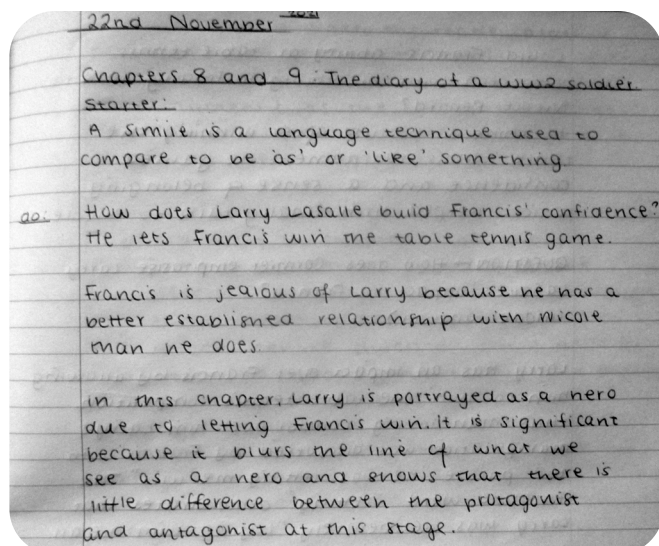 22nd November 2021
Chapters 8 and 9: The diary of a WW2 soldier
Starter:
A simile is a language technique used to
compare to be 'as' or 'like' something.
do: How does Larry Lasalle build Francis' confidence?
He lets Francis win the table tennis game.
Francis is jealous of Larry because he has a
better established relationship with Nicole
than he does.
in this chapter, Larry is portrayed as a hero
due to letting Francis win. It is significant
because it blurs the line of what we
see as a hero and shows that there is
little difference between the protagonist
and antagonist at this stage.